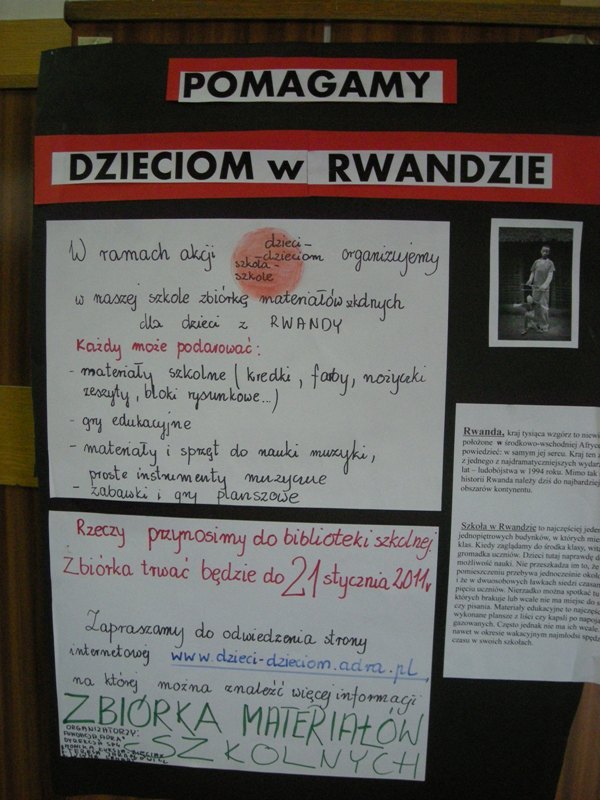 POMAGAMY
DZIECIOM w RWANDZIE
W ramach akcji dzieci-dzieciom szkoła-szkole organizujemy
w naszej szkole zbiórkę materiałów szkolnych
dla dzieci z RWANDY
Każdy może podarować:
- materiały szkolne (kredki, farby, nożyczki
zeszyty, bloki rysunkowe...)
- gry edukacyjne
- materiały i sprzęt do nauki muzyki,
proste instrumenty muzyczne
- zabawki i gry planszowe
Rzeczy przynosimy do biblioteki szkolnej
Zbiórka trwać będzie do 21 stycznia 2011r
Zapraszamy do odwiedzenia strony
internetowej www.dzieci-dzieciom.adra.pl,
na której można znaleźć więcej informacji
ZBIÓRKA MATERIAŁÓW
SZKOLNYCH
ORGANIZATORZY:
FUNDACJA "ADRA"
DYREKCJA
Rwanda, kraj tysiąca wzgórz to niewi
położone w środkowo-wschodniej Afryce
powiedzieć: w samym jej sercu. Kraj ten
z jednego z najdramatyczniejszych wydarz
lat – ludobójstwa w 1994 roku. Mimo tak
historii Rwanda należy dziś do najbardziej
obszarów kontynentu.
Szkoła w Rwandzie to najczęściej jeden
jednopiętrowych budynków, w których mie
klas. Kiedy zaglądamy do środka klasy, wita
gromadka uczniów. Dzieci tutaj naprawdę do
możliwość nauki. Nie przeszkadza im to, że
pomieszczeniu przebywa jednocześnie około
i że w dwuosobowych ławkach siedzi czasam
pięciu uczniów. Nierzadko można spotkać tu
których brakuje lub wcale nie ma miejsc do s
czy pisania. Materiały edukacyjne to najczęśc
wykonane plansze z liści czy kapsli po napoja
gazowanych. Często jednak nie ma ich wcale
nawet w okresie wakacyjnym młodzi spędz
czasu w swoich szkołach.